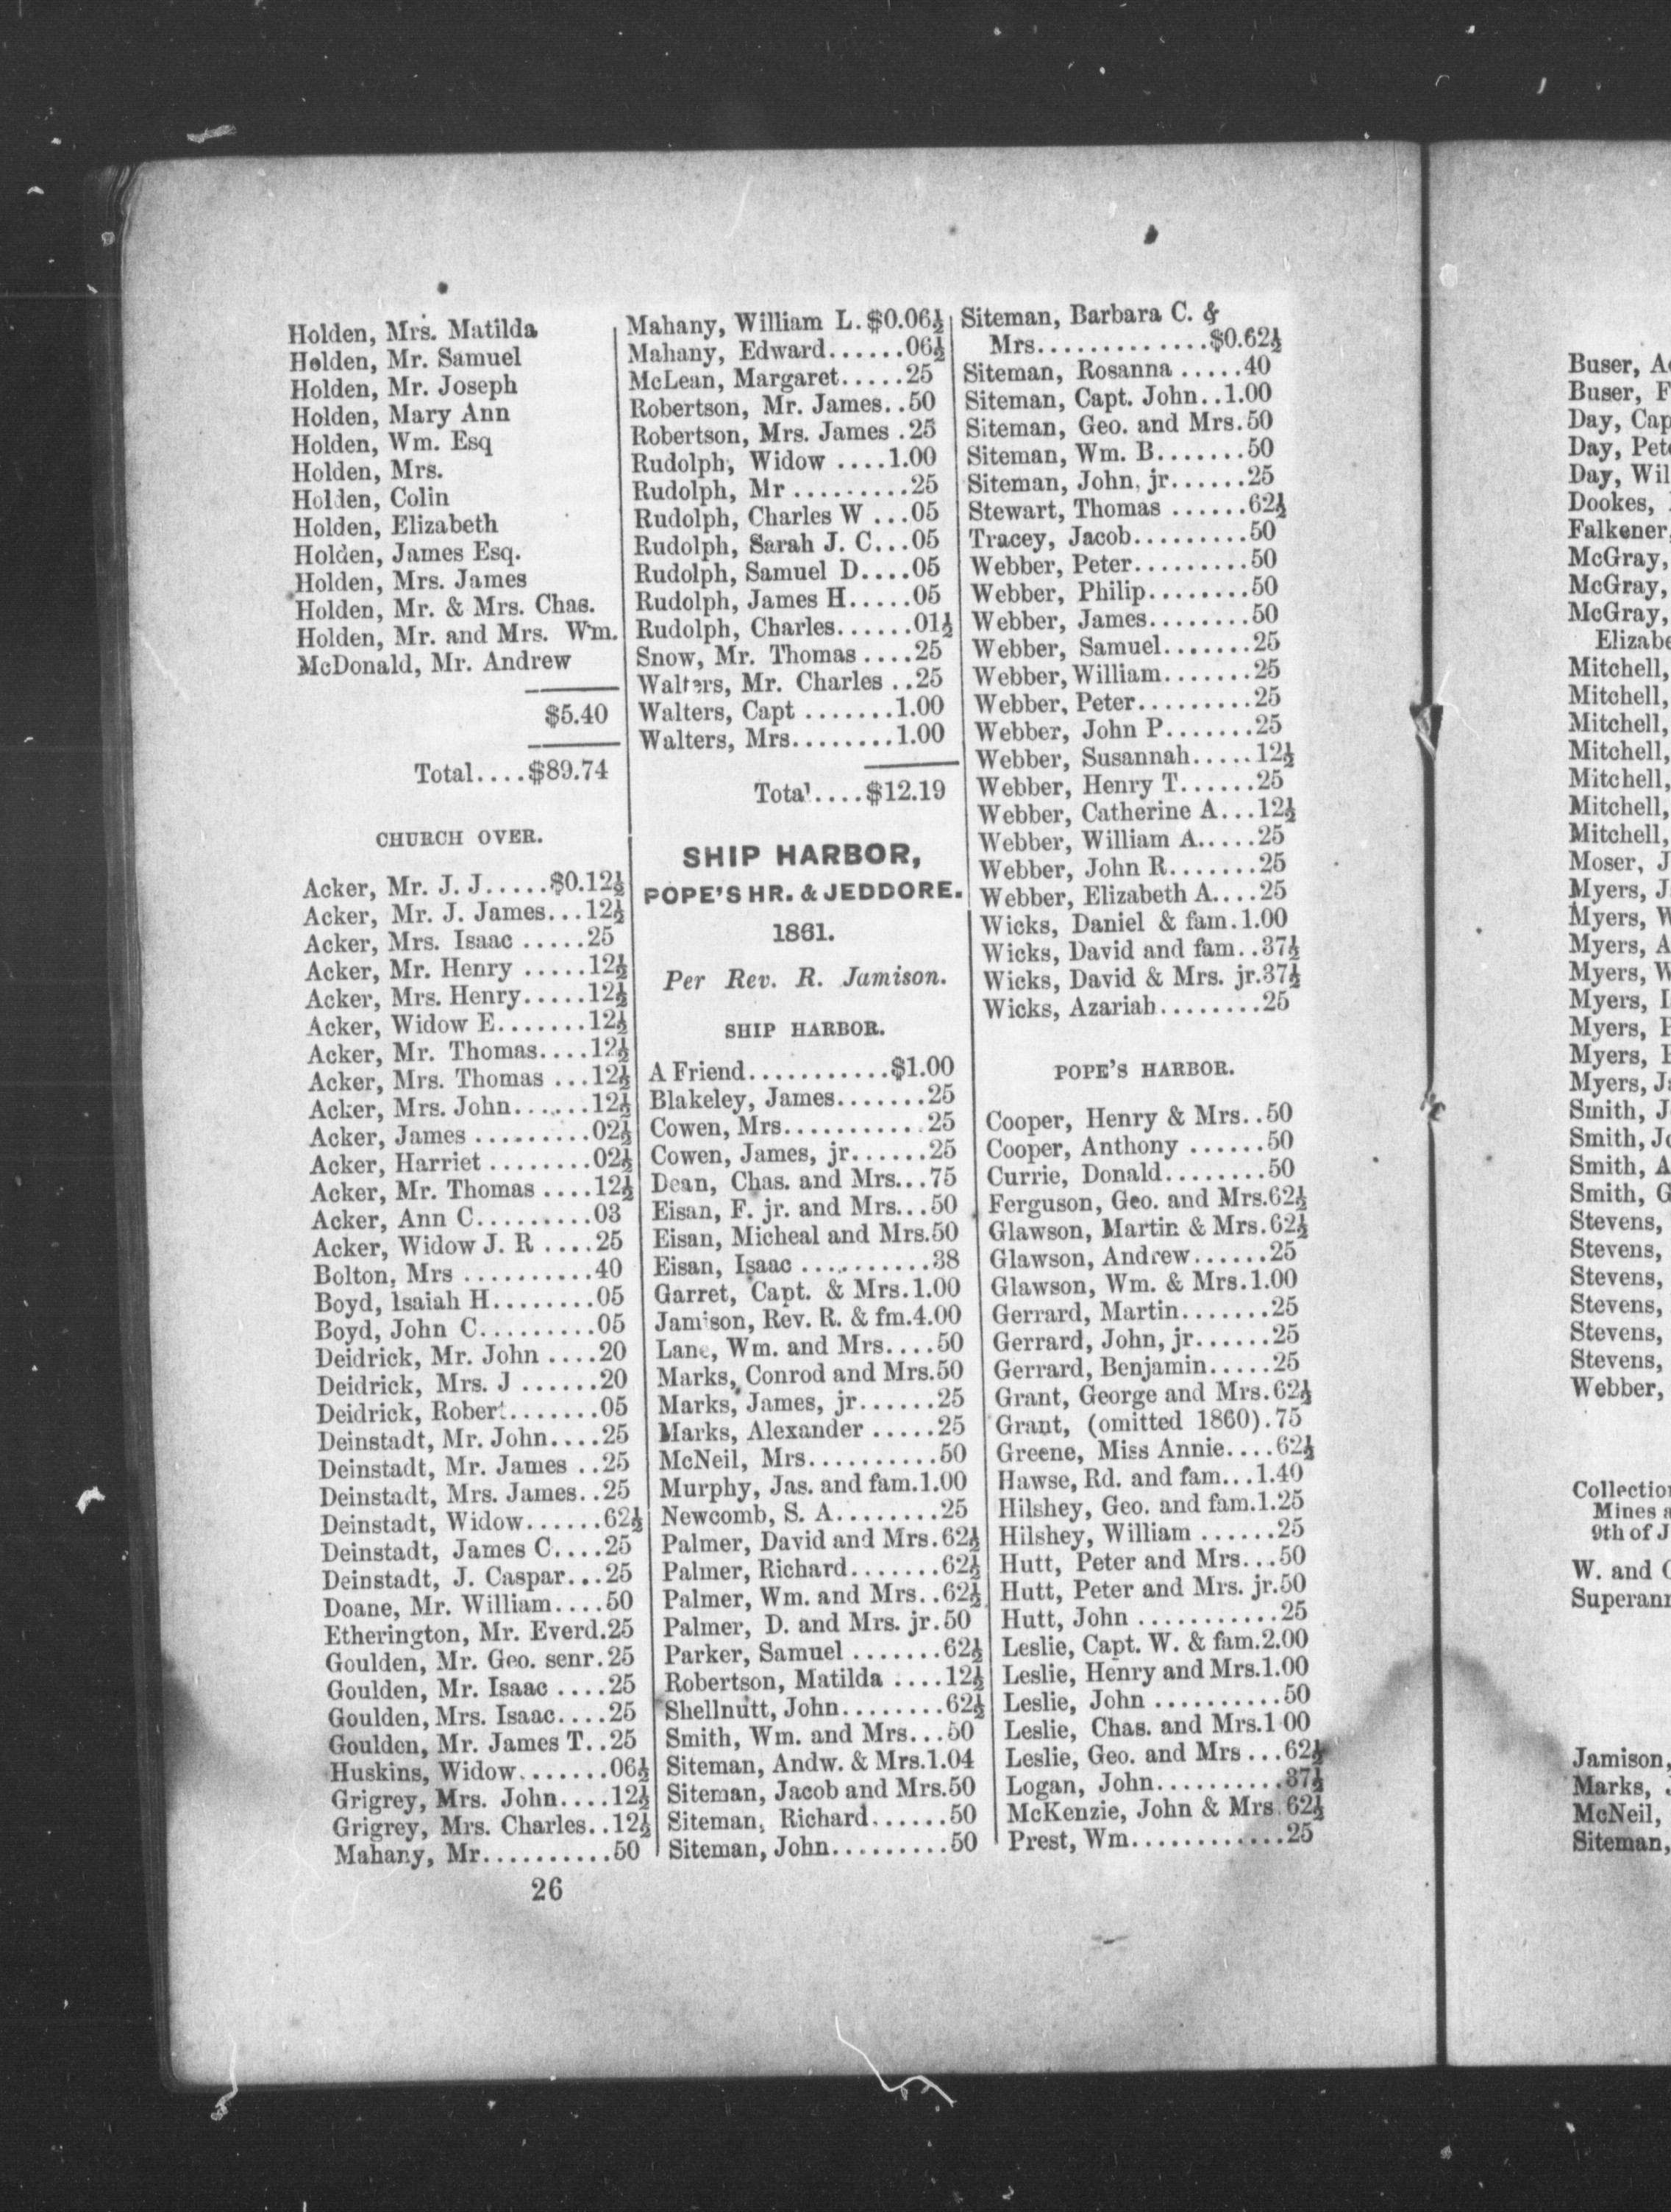 Holden, Mrs. Matilda
Holden, Mr. Samuel
Holden, Mr. Joseph
Holden, Mary Ann
Holden, Wm. Esq
Holden, Mrs.
Holden, Colin
Holden, Elizabeth
Holden, James Esq.
Holden, Mrs. James
Holden, Mr. & Mrs. Chas.
Holden, Mr. and Mrs. Wm.
McDonald, Mr. Andrew
$5.40
Total....$89.74
CHURCH OVER.
Acker, Mr. J. J.....$0.12½
Acker, Mr. J. James...12½
Acker, Mrs. Isaac .....25
Acker, Mr. Henry .....12½
Acker, Mrs. Henry.....12½
Acker, Widow E.......12½
Acker, Mr. Thomas....12½
Acker, Mrs. Thomas ...12½
Acker, Mrs. John.......12½
Acker, James .........02½
Acker, Harriet ........02½
Acker, Mr. Thomas ....12½
Acker, Ann C.........03
Acker, Widow J. R ....25
Bolton, Mrs ..........40
Boyd, Isaiah H........05
Boyd, John C.........05
Deidrick, Mr. John ....20
Deidrick, Mrs. J ......20
Deidrick, Robert.......05
Deinstadt, Mr. John....25
Deinstadt, Mr. James ..25
Deinstadt, Mrs. James..25
Deinstadt, Widow......62½
Deinstadt, James C....25
Deinstadt, J. Caspar...25
Doane, Mr. William....50
Etherington, Mr. Everd.25
Goulden, Mr. Geo. senr.25
Goulden, Mr. Isaac ....25
Goulden, Mrs. Isaac....25
Goulden, Mr. James T..25
Huskins, Widow.......06½
Grigrey, Mrs. John....12½
Grigrey, Mrs. Charles..12½
Mahany, Mr..........50
26
Mahany, William L.$0.06½
Mahany, Edward......06½
McLean, Margaret.....25
Robertson, Mr. James..50
Robertson, Mrs. James .25
Rudolph, Widow ....1.00
Rudolph, Mr .........25
Rudolph, Charles W ...05
Rudolph, Sarah J. C...05
Rudolph, Samuel D....05
Rudolph, James H.....05
Rudolph, Charles......01½
Snow, Mr. Thomas ....25
Walters, Mr. Charles ..25
Walters, Capt .......1.00
Walters, Mrs........1.00
Total....$12.19
SHIP HARBOR,
POPE'S HR. & JEDDORE.
1861.
Per Rev. R. Jamison.
SHIP HARBOR.
A Friend...........$1.00
Blakeley, James.......25
Cowen, Mrs...........25
Cowen, James, jr......25
Dean, Chas. and Mrs...75
Eisan, F. jr. and Mrs...50
Eisan, Micheal and Mrs.50
Eisan, Isaac ..........38
Garret, Capt. & Mrs.1.00
Jamison, Rev. R. & fm.4.00
Lane, Wm. and Mrs....50
Marks, Conrod and Mrs.50
Marks, James, jr......25
Marks, Alexander .....25
McNeil, Mrs..........50
Murphy, Jas. and fam.1.00
Newcomb, S. A........25
Palmer, David and Mrs.62½
Palmer, Richard.......62½
Palmer, Wm. and Mrs..62½
Palmer, D. and Mrs. jr.50
Parker, Samuel .......62½
Robertson, Matilda ....12½
Shellnutt, John........62½
Smith, Wm. and Mrs...50
Siteman, Andw. & Mrs.1.04
Siteman, Jacob and Mrs.50
Siteman, Richard......50
Siteman, John.........50
Siteman, Barbara C. &
Mrs.............$0.62½
Siteman, Rosanna .....40
Siteman, Capt. John..1.00
Siteman, Geo. and Mrs.50
Siteman, Wm. B.......50
Siteman, John, jr......25
Stewart, Thomas ......62½
Tracey, Jacob.........50
Webber, Peter.........50
Webber, Philip........50
Webber, James........50
Webber, Samuel.......25
Webber, William.......25
Webber, Peter.........25
Webber, John P.......25
Webber, Susannah.....12½
Webber, Henry T......25
Webber, Catherine A...12½
Webber, William A.....25
Webber, John R.......25
Webber, Elizabeth A....25
Wicks, Daniel & fam.1.00
Wicks, David and fam..37½
Wicks, David & Mrs. jr.37½
Wicks, Azariah........25
POPE'S HARBOR.
Cooper, Henry & Mrs..50
Cooper, Anthony ......50
Currie, Donald........50
Ferguson, Geo. and Mrs.62½
Glawson, Martin & Mrs.62½
Glawson, Andrew......25
Glawson, Wm. & Mrs.1.00
Gerrard, Martin.......25
Gerrard, John, jr......25
Gerrard, Benjamin.....25
Grant, George and Mrs.62½
Grant, (omitted 1860).75
Greene, Miss Annie....62½
Hawse, Rd. and fam...1.40
Hilshey, Geo. and fam.1.25
Hilshey, William ......25
Hutt, Peter and Mrs...50
Hutt, Peter and Mrs. jr.50
Hutt, John ...........25
Leslie, Capt. W. & fam.2.00
Leslie, Henry and Mrs.1.00
Leslie, John ..........50
Leslie, Chas. and Mrs.1 00
Leslie, Geo. and Mrs ...62½
Logan, John..........37½
McKenzie, John & Mrs.62½
Prest, Wm............25
Buser,
Buser,
Day,
Day,
Day,
Dookes,
Falkener,
McGray,
McGray,
McGray,
Mitchell,
Mitchell,
Mitchell,
Mitchell,
Mitchell,
Mitchell,
Mitchell,
Moser,
Myers,
Myers,
Myers,
Myers,
Myers,
Myers,
Myers,
Myers,
Smith,
Smith,
Smith,
Smith,
Stevens,
Stevens,
Stevens,
Stevens,
Stevens,
Stevens,
Webber,
Mines
9th of
W. and
Jamison,
Marks,
McNeil,
Siteman,